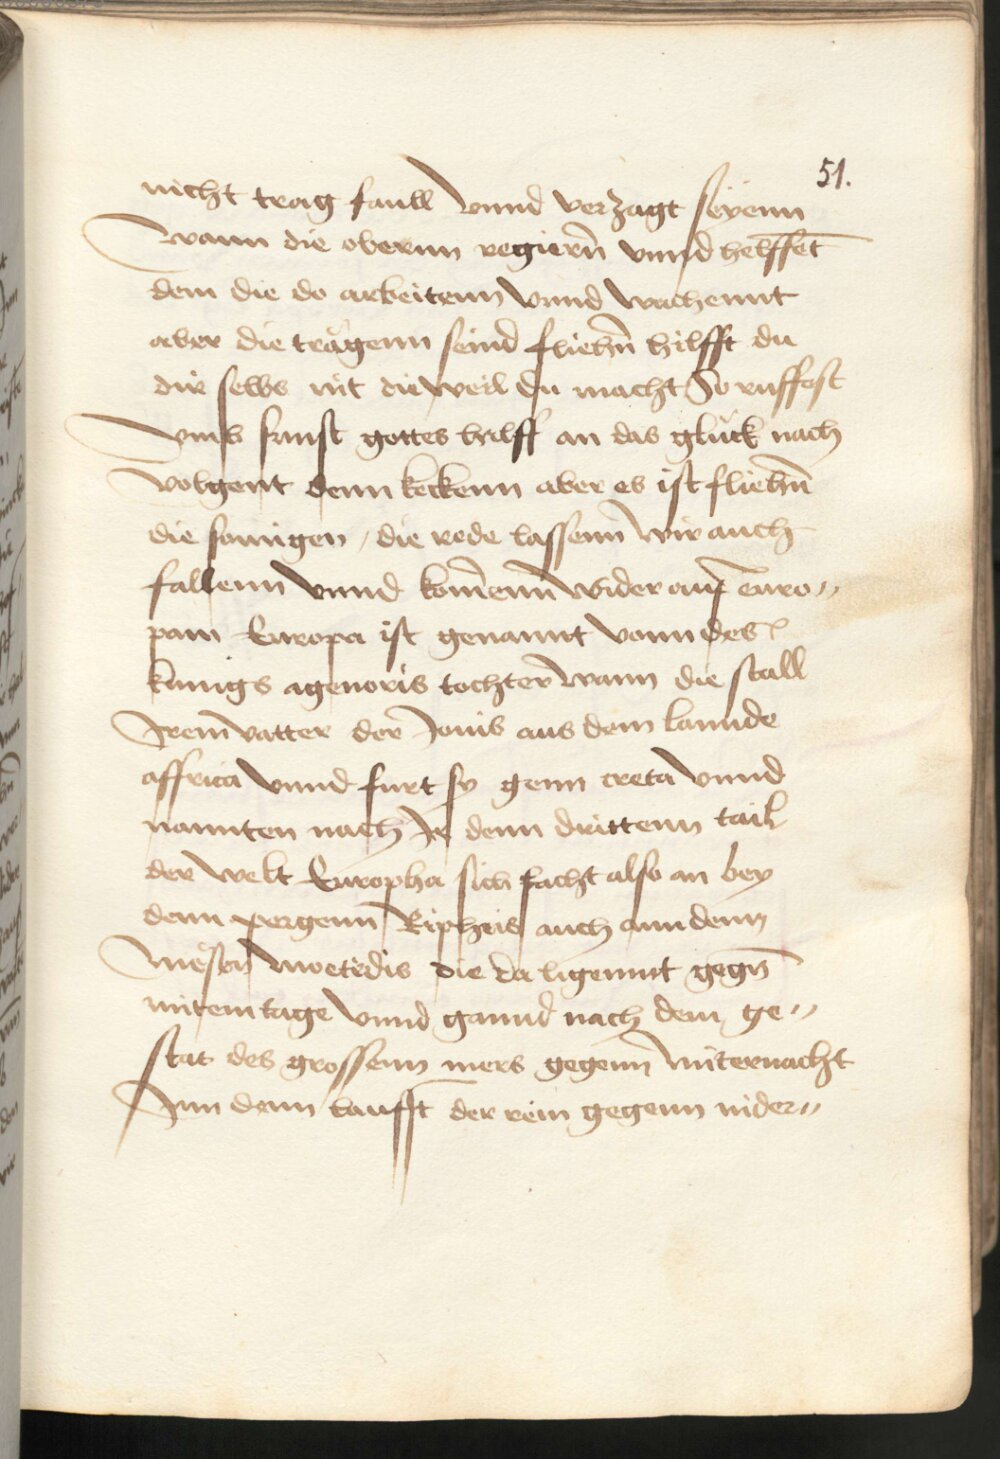 51.
nicht trag faull vnnd verzagt seyenn
Wann die obernn regiern̄ vnnd helffen̄t
dem die do arbeitenn vnnd wachennt
aber die trägenn seind fliehn̄ hilfft du
dir selbs nit die weil du macht So ruffest
vmb sunst gottes hilff an das glück nach
volgent denn keckenn aber es ist fliehn̄
die somigen / die rede lassenn wir auch
fallenn vnnd kom̄enn wider auf euro„
pam Europa ist genannt vonn des
kunigs agenoris tochter wann die stall
Irem vatter der Jouis aus dem lannde
affrica vnnd furt sy genn creta vnnd
nannten nach Ir denn drittenn tail
der welt Europha sich facht also an bey
denn pergenn Ripheis auch ann denn
mesen̄ moetidis die da ligennt gegn̄
mitemtage vnnd gannd nach dem ge„
stat des grossenn mers gegenn mitternacht
Inn denn laufft der rein gegenn nider„